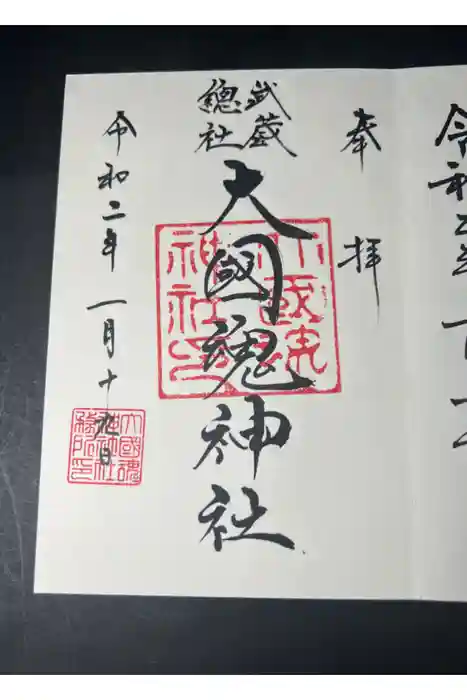 奉拝
武蔵
總社
大國魂神社
大國魂神社印
令和二年一月十九日
大國魂
神社
務所印
令和